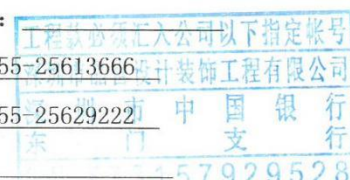 工程款必须汇入公司以下指定帐号
55-25613666
设计装饰工程有限公司
55-25629222
圳市中国银行
东门支行
57929528